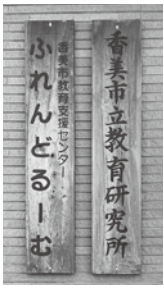 香美市立教育研究所
香美市教育支援センター
ふれんどるーむ